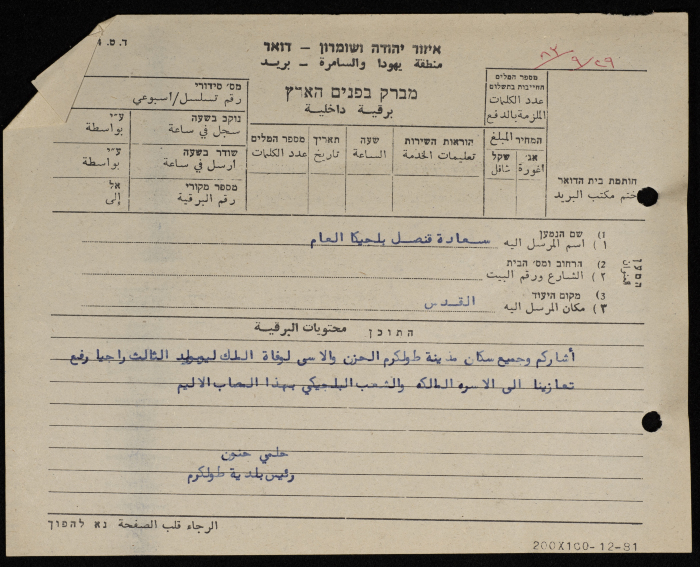 ד.ס. 4
איזור יהודה ושומרון - דואר
منطقة يهودا والسامرة - بريد
٨٢/٩/٢٩
מברק בפנים הארץ
برقية داخلية
מס' סידורי
رقم تسلسل/אסבועי
מספר המלים החייבות בתשלום
عدد الكلمات الملزمة بالدفع
נוקב בשעה
سجل في ساعة
ע"י
بواسطة
שודר בשעה
ارسل في ساعة
ע"י
بواسطة
מספר מקורי
رقم البرقية
אל
إلى
מספר המלים
عدد الكلمات
תאריך
تاريخ
שעה
الساعة
הוראות השירות
تعليمات الخدمة
המחיר المبلغ
אג' שקל
أغورة شاقل
חותמת בית הדואר
ختم مكتب البريد
המען
العنوان
1) שם הנמען
١) اسم المرسل اليه سعادة قنصل بلجيكا العام
2) הרחוב ומס' הבית
٢) الشارع ورقم البيت
3) מקום היעוד
٣) مكان المرسل اليه القدس
התוכן محتويات البرقية
أشارككم وجميع سكان مدينة طولكرم الحزن والاسى لوفاة الملك الثالث راجيا رفع
تعازينا الى الاسره المالكه والشعب البلجيكي بهذا المصاب الاليم
حلمي حنون
رئيس بلدية طولكرم
الرجاء قلب الصفحة נא להפוך
200X100-12-81